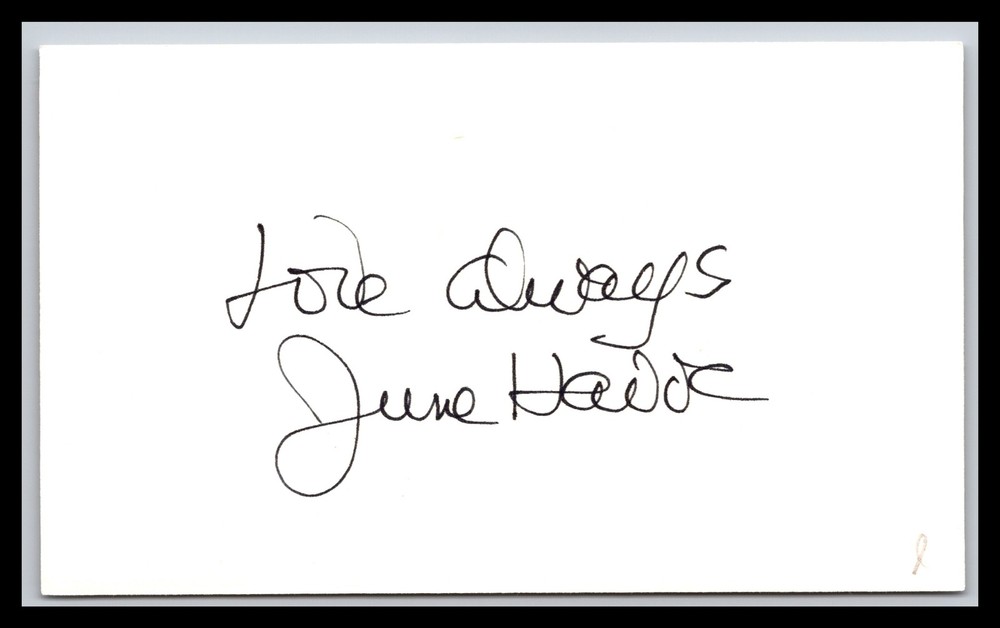 Love always
June Havoc